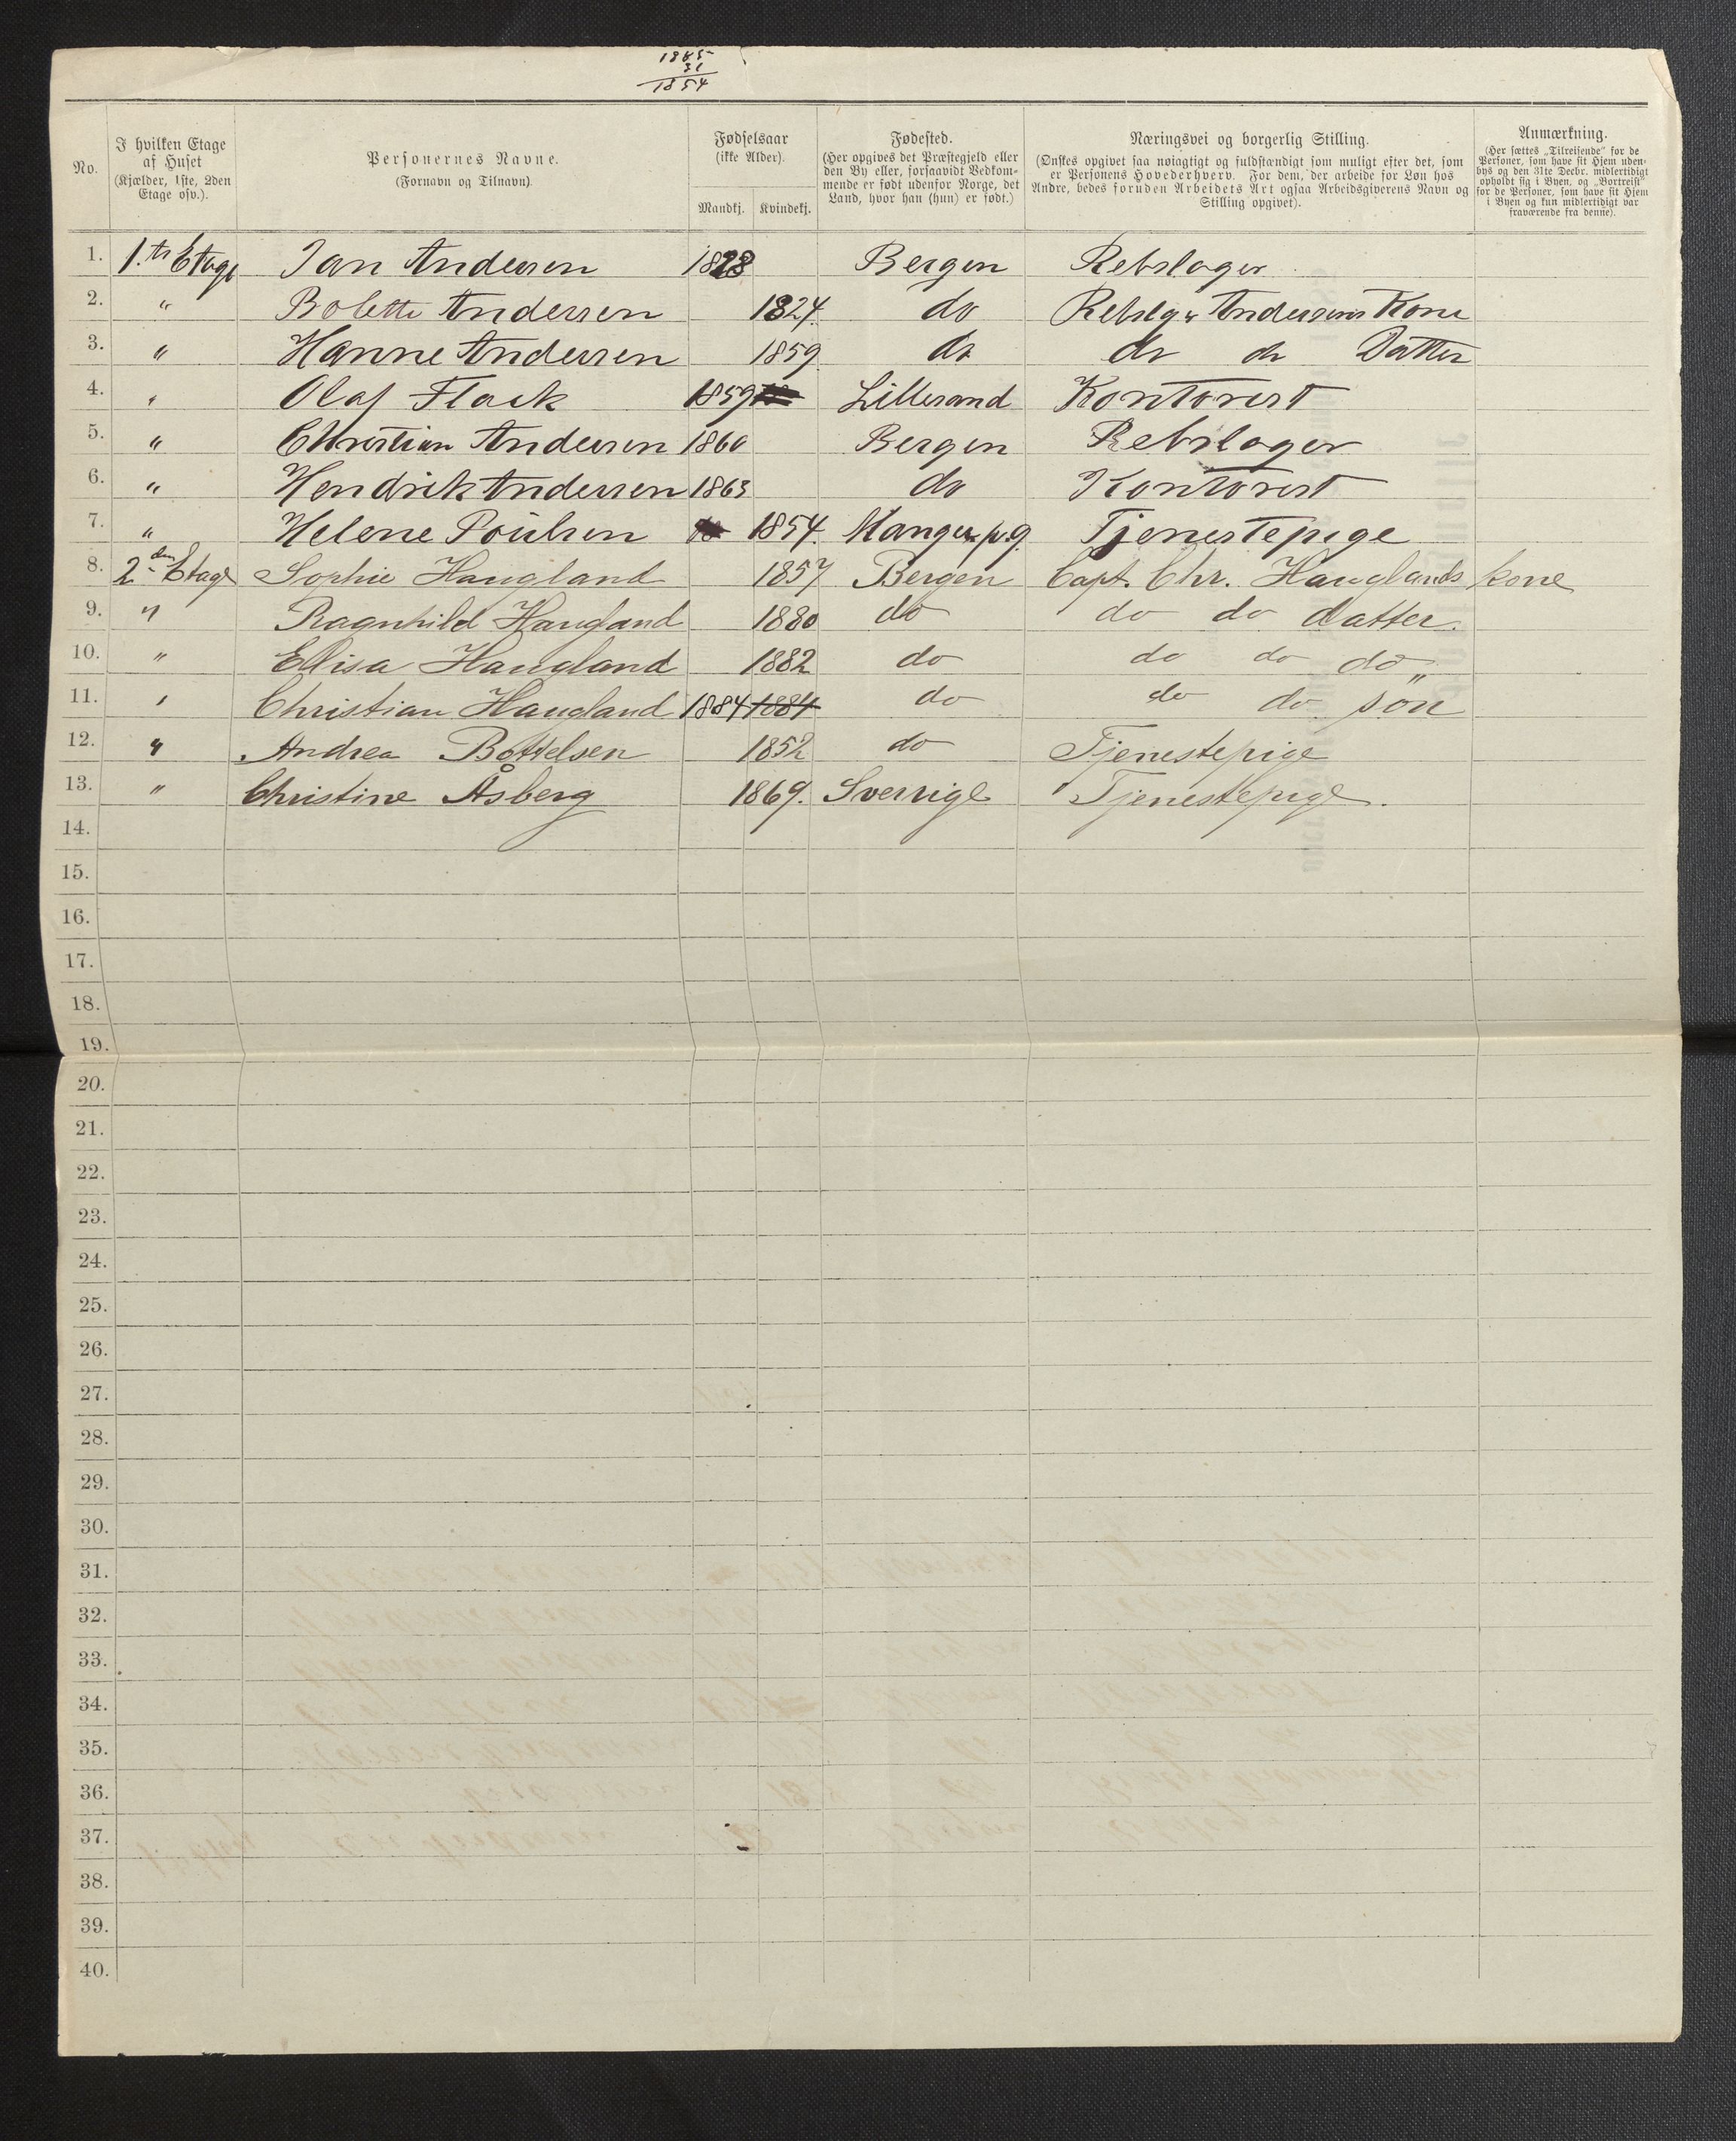 1885
31
1854
No.
I hvilken Etage af Huset (Kjælder, 1ste, 2den Etage osv.).
Personernes Navne. (Fornavn og Tilnavn).
Fødselsaar (ikke Alder).
Mandkj. Kvindekj.
Fødested. (Her opgives det Præstegjeld eller den By eller, forsaavidt Vedkommende er født udenfor Norge, det Land, hvor han (hun) er født.)
Næringsvei og borgerlig Stilling. (Ønskes opgivet saa nøiagtigt og fuldstændigt som muligt efter det, som er Personens Hovederhverv. For dem, der arbeide for Løn hos Andre, bedes foruden Arbeidets Art ogsaa Arbeidsgiverens Navn og Stilling opgivet).
Anmærkning. (Her sættes „Tilreisende" for de Personer, som have sit Hjem udenbys og den 31te Decbr. midlertidigt opholdt sig i Byen, og „Bortreist" for de Personer, som have sit Hjem i Byen og kun midlertidigt var fraværende fra denne).
1. 1.ste Etage Jan Andersen 1828 Bergen Rebslager
2. " Bolette Andersen 1824. do Rebslgr Andersens Kone
3. " Hanne Andersen 1859 do do do Datter
4. " Olaf Flack 1859 Lillesand Kontorist
5. " Christian Andersen 1860 Bergen Rebslager
6. " Hendrik Andersen 1863 do Kontorist
7. " Helene Poulsen 1854. Manger p.g. Tjenestepige
8. 2den Etage Sophie Haugland 1857 Bergen Capt. Chr. Hauglands kone
9. " Ragnhild Haugland 1880 do do do datter.
10. " Elisa Haugland 1882 do do do do
11. " Christian Haugland 1884 1884 do do do søn
12. " Andrea Bottelsen 1852 do Tjenestepige
13. " Christine Åsberg 1869. Sverrige Tjenestepige.
14.
15.
16.
17.
18.
19.
20.
21.
22.
23.
24.
25.
26.
27.
28.
29.
30.
31.
32.
33.
34.
35.
36.
37.
38.
39.
40.